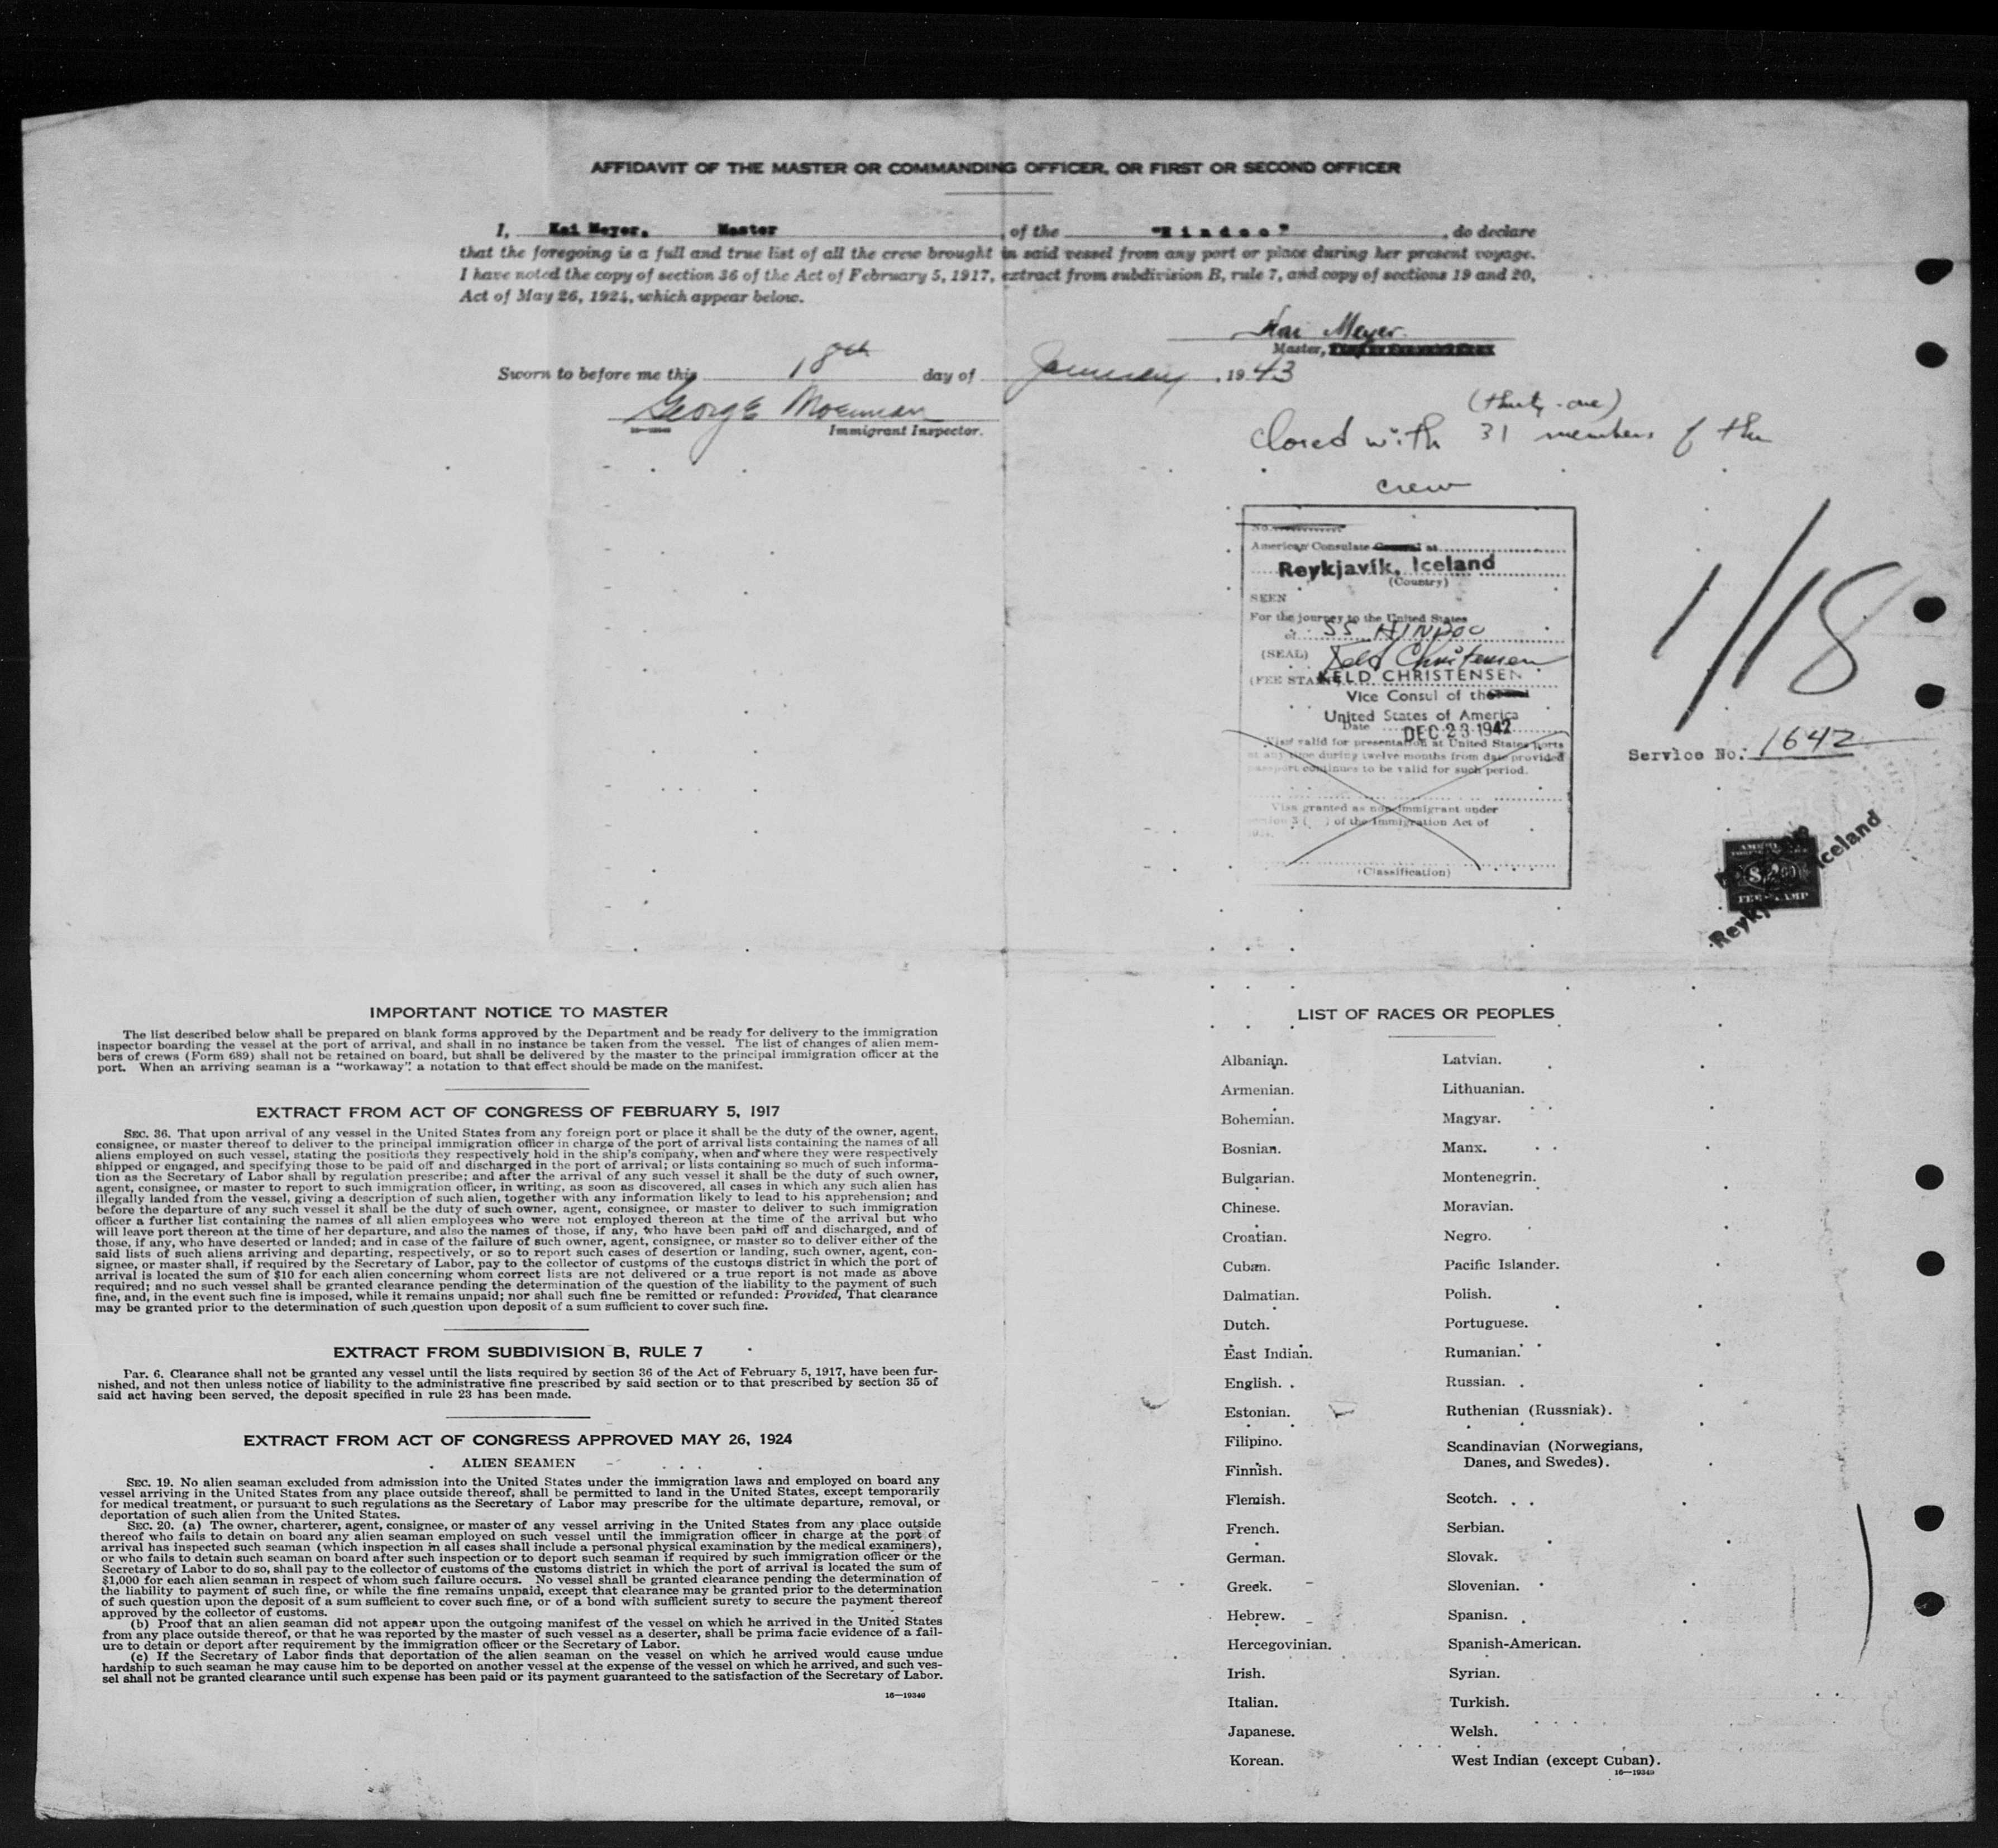 AFFIDAVIT OF THE MASTER OR COMMANDING OFFICER, OR FIRST OR SECOND OFFICER
I, Kai Meyer, Master, of the "Hindoo", do declare
that the foregoing is a full and true list of all the crew brought in said vessel from any port or place during her present voyage.
I have noted the copy of section 36 of the Act of February 5, 1917, extract from subdivision B, rule 7, and copy of sections 19 and 20,
Act of May 26, 1924, which appear below.
Kai Meyer.
Master,
Sworn to before me this 18th day of January, 1943
George
Immigrant Inspector.
(thirty-one)
closed with 31 members of the
crew
No.
American Consulate General at
Reykjavik, Iceland
(Country)
SEEN
For the journey to the United States
of SS HINDOO
(SEAL) Keld Christensen
(FEE STAMP) KELD CHRISTENSEN
Vice Consul of the
United States of America
Date DEC 23 1942
Visa valid for presentation at United States ports
at any time during twelve months from date provided
passport continues to be valid for such period.
Visa granted as non-immigrant under
section 3 ( ) of the Immigration Act of
1924.
(Classification)
1/18
Service No: 1642
Reykjavik, Iceland
FEE STAMP
IMPORTANT NOTICE TO MASTER
The list described below shall be prepared on blank forms approved by the Department and be ready for delivery to the immigration
inspector boarding the vessel at the port of arrival, and shall in no instance be taken from the vessel. The list of changes of alien mem-
bers of crews (Form 689) shall not be retained on board, but shall be delivered by the master to the principal immigration officer at the
port. When an arriving seaman is a "workaway", a notation to that effect should be made on the manifest.
EXTRACT FROM ACT OF CONGRESS OF FEBRUARY 5, 1917
SEC. 36. That upon arrival of any vessel in the United States from any foreign port or place it shall be the duty of the owner, agent,
consignee, or master thereof to deliver to the principal immigration officer in charge of the port of arrival lists containing the names of all
aliens employed on such vessel, stating the positions they respectively hold in the ship's company, when and where they were respectively
shipped or engaged, and specifying those to be paid off and discharged in the port of arrival; or lists containing so much of such informa-
tion as the Secretary of Labor shall by regulation prescribe; and after the arrival of any such vessel it shall be the duty of such owner,
agent, consignee, or master to report to such immigration officer, in writing, as soon as discovered, all cases in which any such alien has
illegally landed from the vessel, giving a description of such alien, together with any information likely to lead to his apprehension; and
before the departure of any such vessel it shall be the duty of such owner, agent, consignee, or master to deliver to such immigration
officer a further list containing the names of all alien employees who were not employed thereon at the time of the arrival but who
will leave port thereon at the time of her departure, and also the names of those, if any, who have been paid off and discharged, and of
those, if any, who have deserted or landed; and in case of the failure of such owner, agent, consignee, or master so to deliver either of the
said lists of such aliens arriving and departing, respectively, or so to report such cases of desertion or landing, such owner, agent, con-
signee, or master shall, if required by the Secretary of Labor, pay to the collector of customs of the customs district in which the port of
arrival is located the sum of $10 for each alien concerning whom correct lists are not delivered or a true report is not made as above
required; and no such vessel shall be granted clearance pending the determination of the question of the liability to the payment of such
fine, and, in the event such fine is imposed, while it remains unpaid; nor shall such fine be remitted or refunded: Provided, That clearance
may be granted prior to the determination of such question upon deposit of a sum sufficient to cover such fine.
EXTRACT FROM SUBDIVISION B, RULE 7
Par. 6. Clearance shall not be granted any vessel until the lists required by section 36 of the Act of February 5, 1917, have been fur-
nished, and not then unless notice of liability to the administrative fine prescribed by said section or to that prescribed by section 35 of
said act having been served, the deposit specified in rule 23 has been made.
EXTRACT FROM ACT OF CONGRESS APPROVED MAY 26, 1924
ALIEN SEAMEN
SEC. 19. No alien seaman excluded from admission into the United States under the immigration laws and employed on board any
vessel arriving in the United States from any place outside thereof, shall be permitted to land in the United States, except temporarily
for medical treatment, or pursuant to such regulations as the Secretary of Labor may prescribe for the ultimate departure, removal, or
deportation of such alien from the United States.
SEC. 20. (a) The owner, charterer, agent, consignee, or master of any vessel arriving in the United States from any place outside
thereof who fails to detain on board any alien seaman employed on such vessel until the immigration officer in charge at the port of
arrival has inspected such seaman (which inspection in all cases shall include a personal physical examination by the medical examiners),
or who fails to detain such seaman on board after such inspection or to deport such seaman if required by such immigration officer or the
Secretary of Labor to do so, shall pay to the collector of customs of the customs district in which the port of arrival is located the sum of
$1,000 for each alien seaman in respect of whom such failure occurs. No vessel shall be granted clearance pending the determination of
the liability to payment of such fine, or while the fine remains unpaid, except that clearance may be granted prior to the determination
of such question upon the deposit of a sum sufficient to cover such fine, or of a bond with sufficient surety to secure the payment thereof
approved by the collector of customs.
(b) Proof that an alien seaman did not appear upon the outgoing manifest of the vessel on which he arrived in the United States
from any place outside thereof, or that he was reported by the master of such vessel as a deserter, shall be prima facie evidence of a fail-
ure to detain or deport after requirement by the immigration officer or the Secretary of Labor.
(c) If the Secretary of Labor finds that deportation of the alien seaman on the vessel on which he arrived would cause undue
hardship to such seaman he may cause him to be deported on another vessel at the expense of the vessel on which he arrived, and such ves-
sel shall not be granted clearance until such expense has been paid or its payment guaranteed to the satisfaction of the Secretary of Labor.
16—19349
LIST OF RACES OR PEOPLES
Albanian.
Armenian.
Bohemian.
Bosnian.
Bulgarian.
Chinese.
Croatian.
Cuban.
Dalmatian.
Dutch.
East Indian.
English.
Estonian.
Filipino.
Finnish.
Flemish.
French.
German.
Greek.
Hebrew.
Hercegovinian.
Irish.
Italian.
Japanese.
Korean.
Latvian.
Lithuanian.
Magyar.
Manx.
Montenegrin.
Moravian.
Negro.
Pacific Islander.
Polish.
Portuguese.
Rumanian.
Russian.
Ruthenian (Russniak).
Scandinavian (Norwegians,
Danes, and Swedes).
Scotch.
Serbian.
Slovak.
Slovenian.
Spanish.
Spanish-American.
Syrian.
Turkish.
Welsh.
West Indian (except Cuban).
16—19349